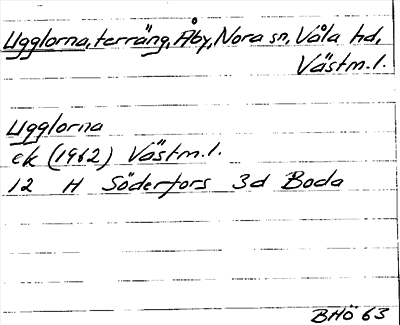 Ugglorna, terräng, Åby, Nora sn, Våla hd,
Västm.l.
Ugglorna
ek (1962) Västm.l.
12 H Söderfors 3d Boda
BHÖ 63